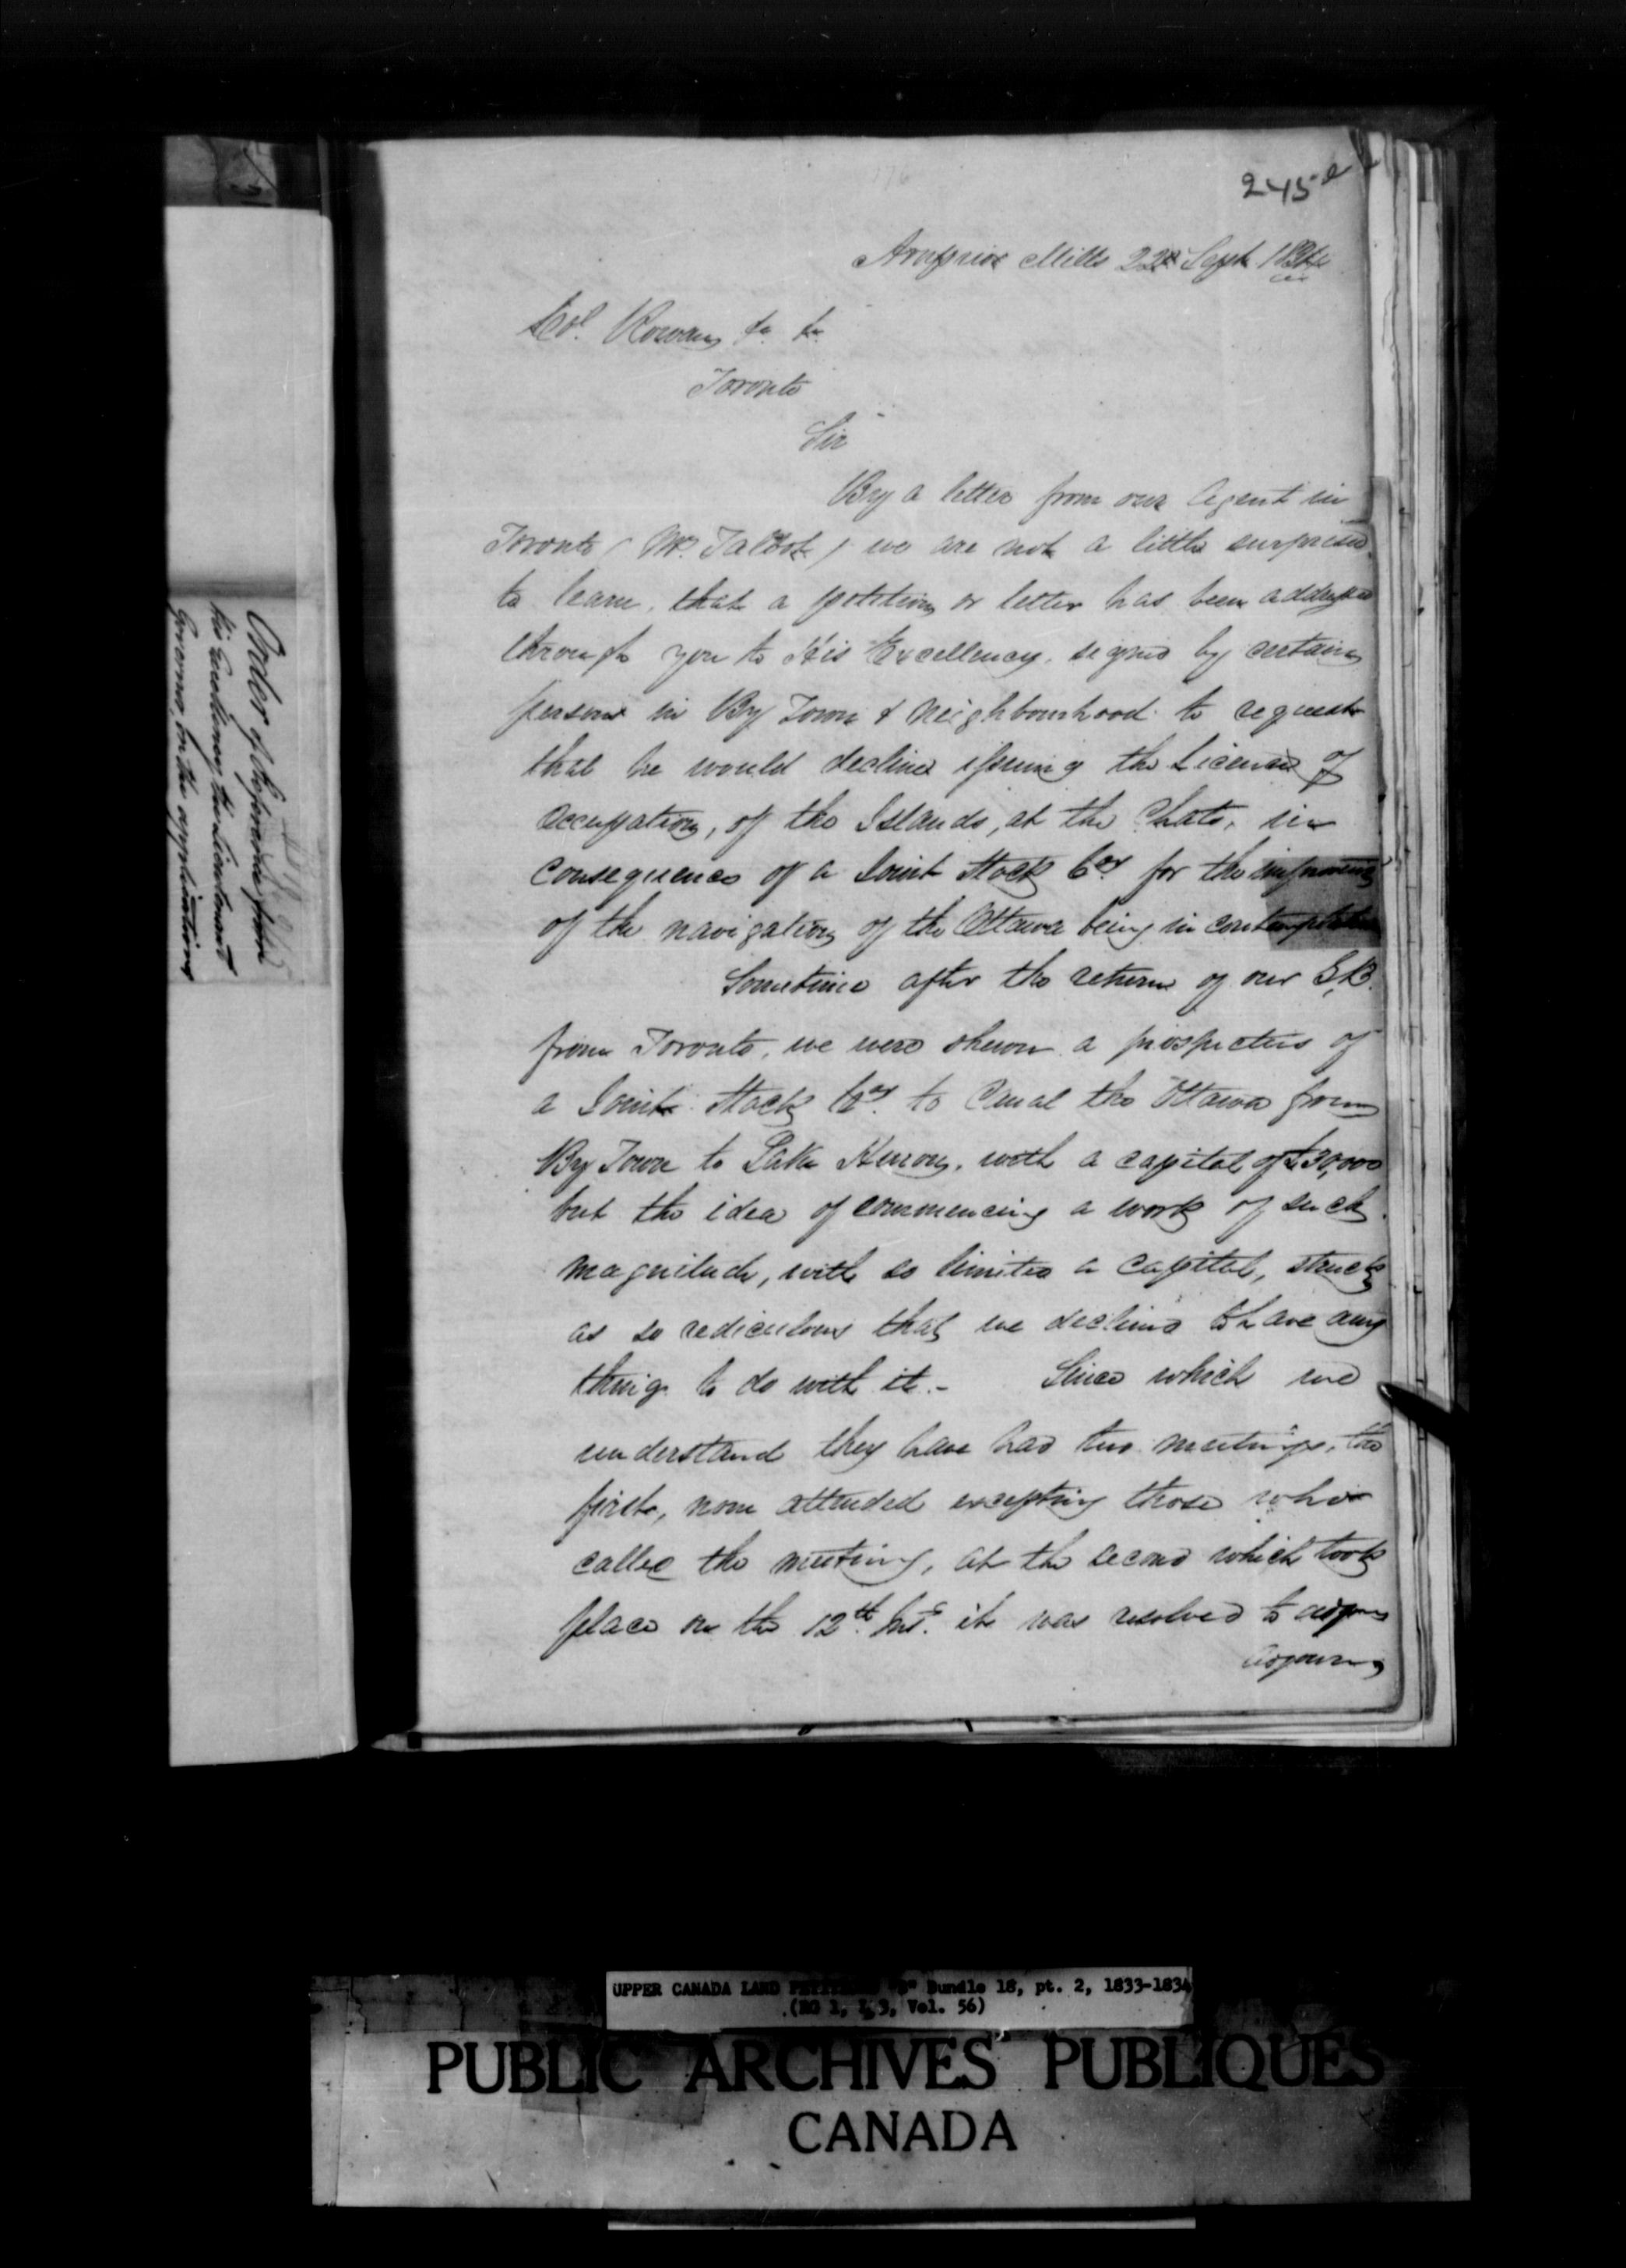 245e
Arnprior Mills 22d Sept 1834
Col. Rowan &c. &c.
Toronto
Sir
By a letter from our Agent in
Toronto (Mr. Talbot) we are not a little surprised
to learn, that a petition or letter has been addressed
through you to His Excellency, signed by certain
persons in By Town & Neighbourhood to request
that he would decline issuing the License of
Occupation, of the Islands, at the Chats, in
consequence of a Joint Stock Coy. for the improving
of the navigation of the Ottawa being in contemplation
Sometime after the return of our G.B.
from Toronto, we were shewn a prospectus of
a Joint Stock Coy. to Canal the Ottawa from
By Town to Lake Huron, with a capital of £30,000
but the idea of commencing a work of such
magnitude, with so limited a Capital, struck
as so rediculous that we declined to have any
thing to do with it.- Since which we
understand they have had two meetings, the
first, none attended excepting those who
called the meeting, at the second which took
place on the 12th. Inst. it was resolved to adjourn
adjourn
Order of Reference from
his Excellency the Lieutenant
Governor, on the application
UPPER CANADA LAND PETITIONS "B" Bundle 18, pt. 2, 1833-1834
(RG 1, L 3, Vol. 56)
PUBLIC ARCHIVES PUBLIQUES
CANADA